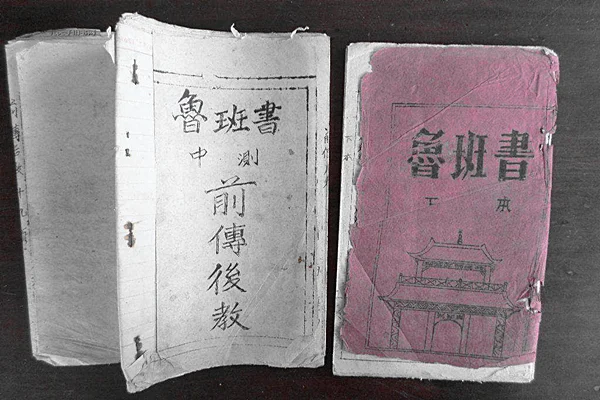 魯班書
中測
前傳後教
魯班書
本